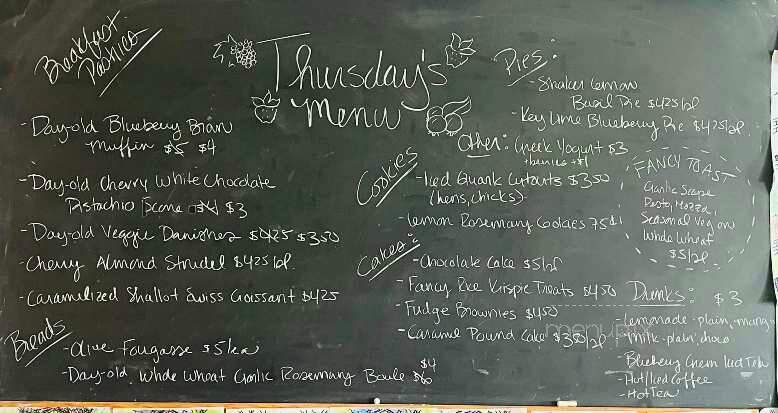 Thursday's
Menu
Breakfast
Pastries
-Day-old Blueberry Bran
Muffin $5 $4
-Day-old Cherry White Chocolate
Pistachio Scone $4 $3
-Day-old Veggie Danishes $4.25 $3.50
-Cherry Almond Strudel $4.25/pf.
-Caramelized Shallot Swiss Croissant $4.25
Breads
-Olive Fougasse $5/ea
-Day-old Whole Wheat Garlic Rosemary Boule $4
Pies:
-Shaker Lemon
Basil Pie $4.25/pf
-Key Lime Blueberry Pie $4.25/pf.
Other: Greek Yogurt $3
+berries +$1
Cookies
-Iced Quark Cutouts $3.50
(hens, chicks)
-Lemon Rosemary Cookies 75¢
Cakes:
-Chocolate Cake $5/pf
-Fancy Rice Krispie Treats $4.50
-Fudge Brownies $4.50
-Caramel Pound Cake $3.50/pf
FANCY TOAST
Garlic Scape
Pesto, Mozza,
Seasonal Veg on
Whole Wheat
$5/pf
Drinks: $3
-Lemonade-plain, mango
-Milk-plain, choco
-Blueberry Green Iced Tea
-Hot/Iced Coffee
-Hot Tea
menupix